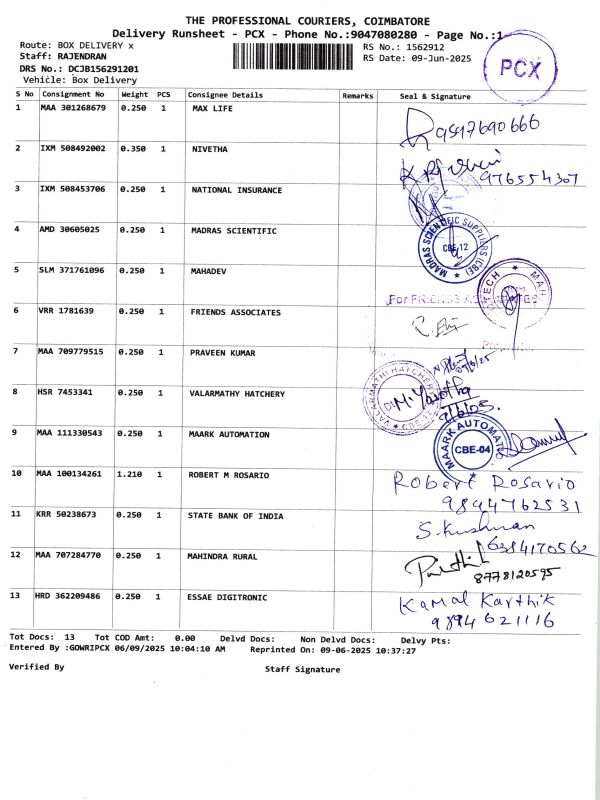 THE PROFESSIONAL COURIERS, COIMBATORE
Delivery Runsheet - PCX - Phone No.:9047080280 - Page No.:1
Route: BOX DELIVERY x
RS No.: 1562912
Staff: RAJENDRAN
RS Date: 09-Jun-2025
DRS No.: DCJB156291201
Vehicle: Box Delivery
PCX
S No Consignment No Weight PCS Consignee Details Remarks Seal & Signature
1 MAA 301268679 0.250 1 MAX LIFE
9597690666
2 IXM 508492002 0.350 1 NIVETHA
976554307
3 IXM 508453706 0.250 1 NATIONAL INSURANCE
4 AMD 30605025 0.250 1 MADRAS SCIENTIFIC
MADRAS SCIENTIFIC SUPPLIERS (CBE) CBE-12
5 SLM 371761096 0.250 1 MAHADEV
For FRIENDS
6 VRR 1781639 0.250 1 FRIENDS ASSOCIATES
7 MAA 709779515 0.250 1 PRAVEEN KUMAR
8 HSR 7453341 0.250 1 VALARMATHY HATCHERY
VALARMATHI HATCHERY
9 MAA 111330543 0.250 1 MAARK AUTOMATION
MAARK AUTOMATION CBE-04
10 MAA 100134261 1.210 1 ROBERT M ROSARIO
Robert Rosario
9894762531
11 KRR 50238673 0.250 1 STATE BANK OF INDIA
6384170562
12 MAA 707284770 0.250 1 MAHINDRA RURAL
8778120595
13 HRD 362209486 0.250 1 ESSAE DIGITRONIC
Kamal Karthik
9894621116
Tot Docs: 13 Tot COD Amt: 0.00 Delvd Docs: Non Delvd Docs: Delvy Pts:
Entered By :GOWRIPCX 06/09/2025 10:04:10 AM Reprinted On: 09-06-2025 10:37:27
Verified By
Staff Signature